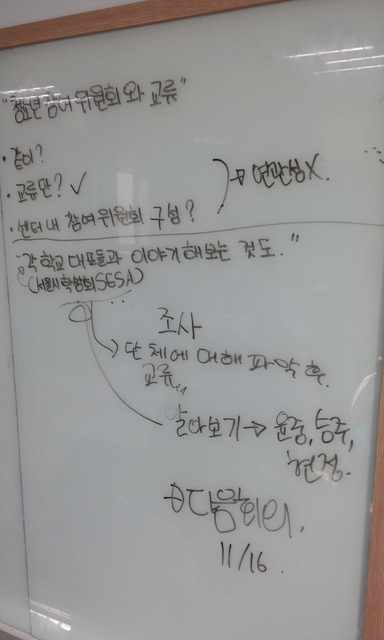 "청소년 참여 위원회와 교류"
· 같이?
· 교류만? ✓
→ 연관성 X.
· 센터 내 참여위원회 구성?
"각 학교 대표들과 이야기 해보는 것도."
(서울시학생회 SGSA)
조사
→ 단체에 대해 파악 후.
교류
알아보기 → 윤중, 승주,
현정.
→ 다음회의.
11/16.